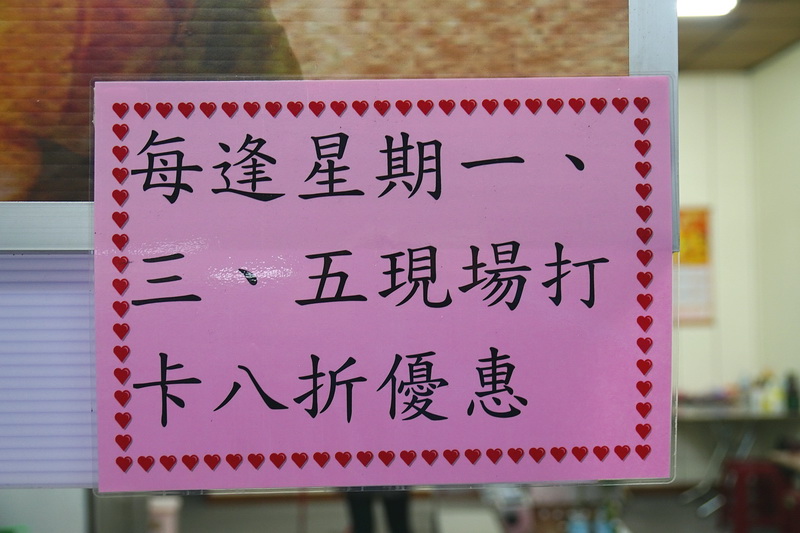 每逢星期一、
三、五現場打
卡八折優惠